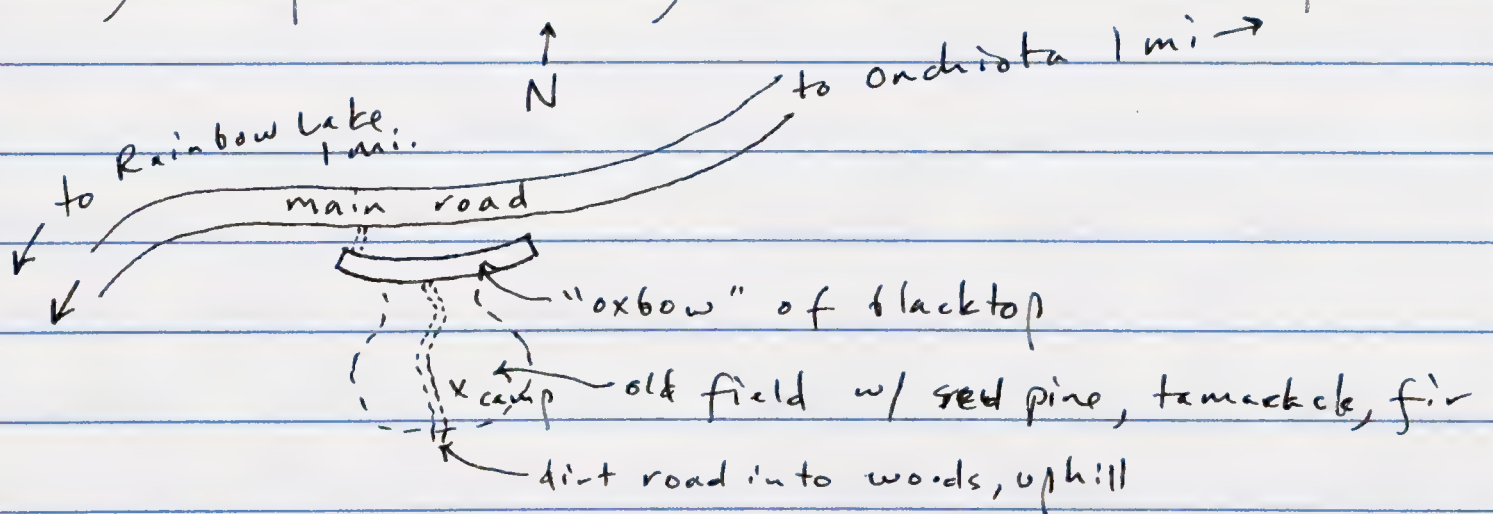 N
to Onchiota 1 mi
to Rainbow Lake,
1 mi.
main road
"oxbow" of blacktop
x camp
old field w/ red pine, tamarack, fir
dirt road into woods, uphill